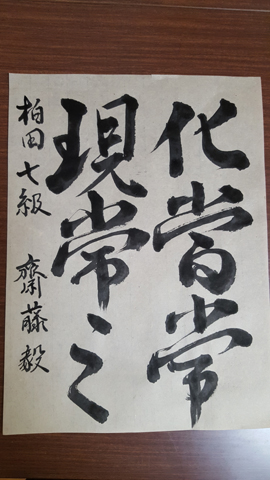 化當常
現常〻
柏田七級 齋藤毅